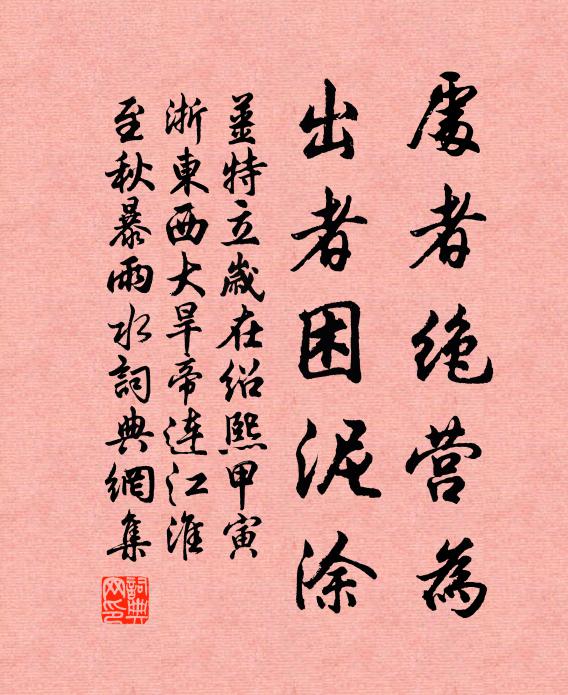 處者绝营為
出者困泥涂
姜特立歲在绍熙甲寅
浙東西大旱帝連江淮
至秋暴雨水詞典網集
詞典网印